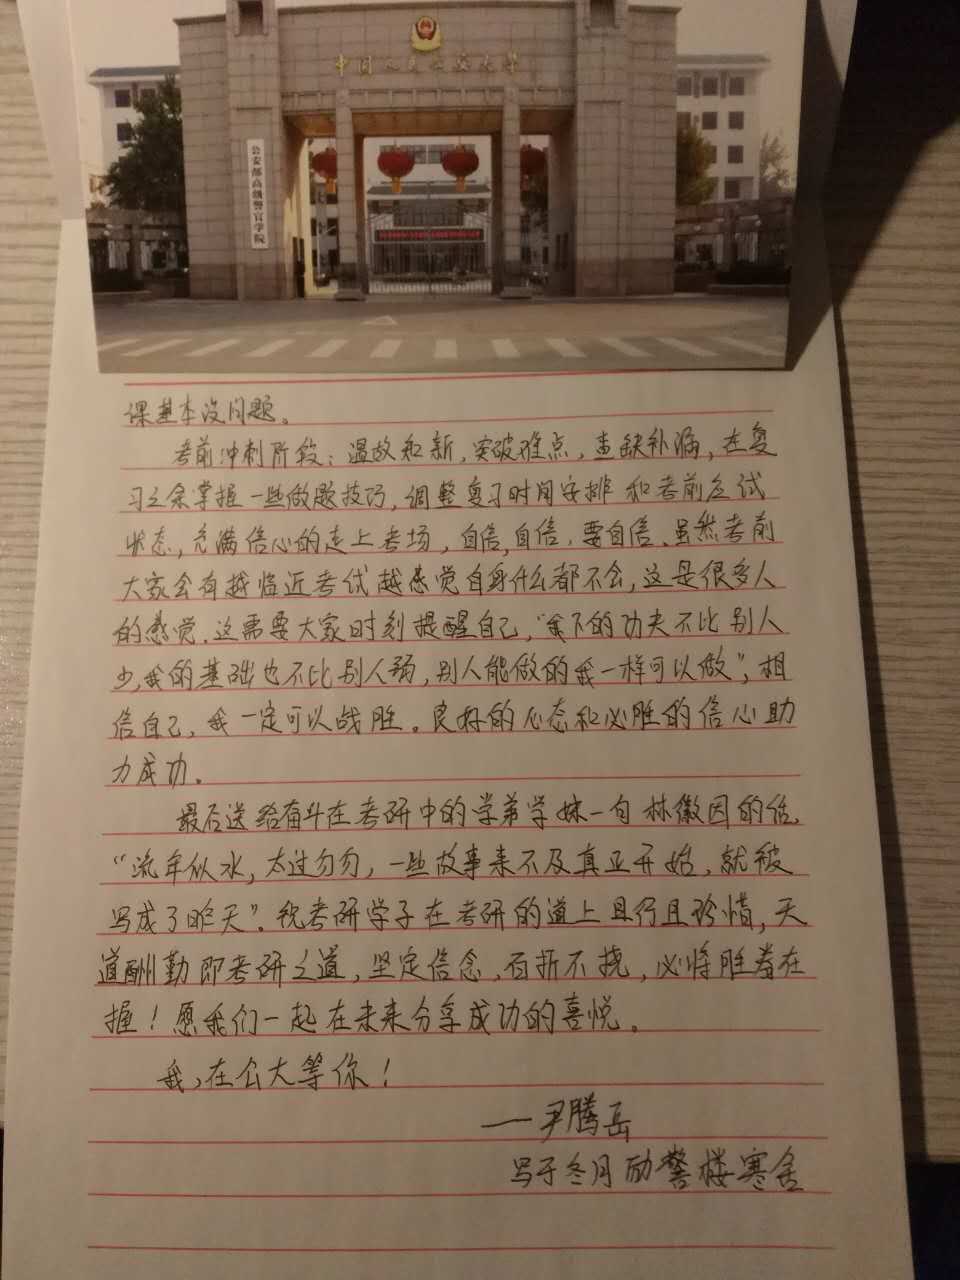 中国人民公安大学
公安部高级警官学院
课基本没问题。
考前冲刺阶段：温故知新，突破难点，查缺补漏，在复
习之余掌握一些做题技巧，调整复习时间安排和考前应试
状态，充满信心的走上考场，自信，自信，要自信。虽然考前
大家会有越临近考试越感觉自身什么都不会，这是很多人
的感觉，这需要大家时刻提醒自己，“我下的功夫不比别人
少，我的基础也不比别人弱，别人能做的我一样可以做”，相
信自己，我一定可以战胜。良好的心态和必胜的信心助
力成功。
最后送给奋斗在考研中的学弟学妹一句林徽因的话，
“流年似水，太过匆匆，一些故事来不及真正开始，就被
写成了昨天”。祝考研学子在考研的道上且行且珍惜，天
道酬勤即考研之道，坚定信念，百折不挠，必将胜券在
握！愿我们一起在未来分享成功的喜悦。
我，在公大等你！
——尹腾岳
写于冬月励警楼寒舍